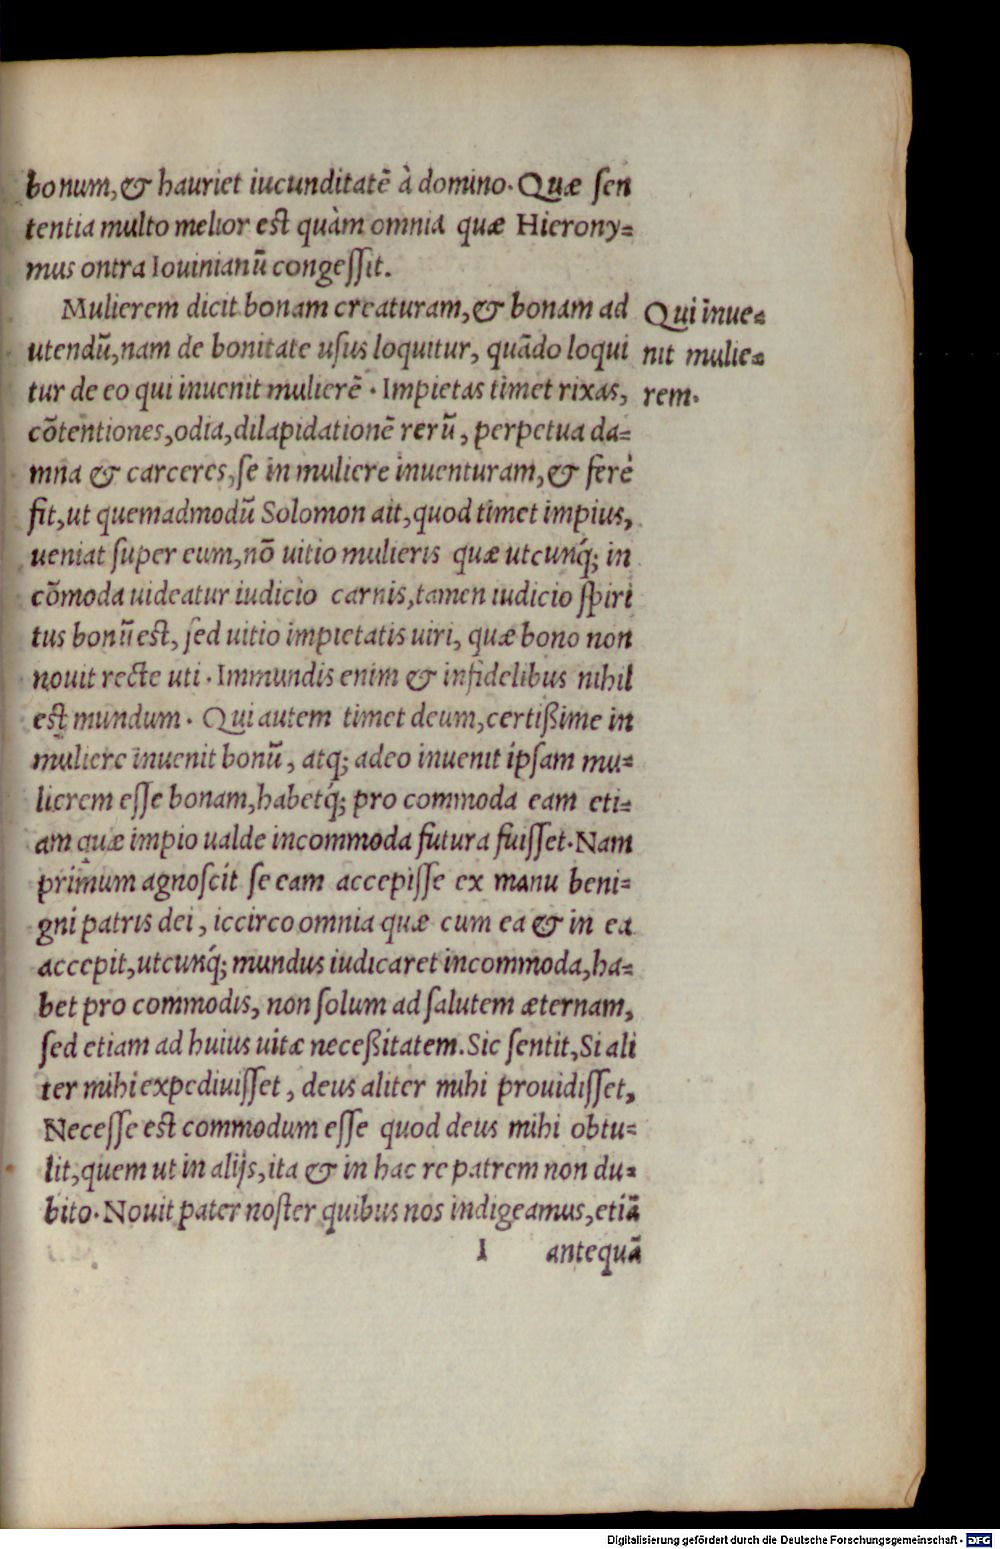 bonum, & hauriet iucunditatē à domino. Quæ sen
tentia multo melior est quàm omnia quæ Hierony=
mus ontra Iouinianū congessit.
Mulierem dicit bonam creaturam, & bonam ad
utendū, nam de bonitate usus loquitur, quādo loqui
tur de eo qui inuenit mulierē. Impietas timet rixas,
cōtentiones, odia, dilapidationē rerū, perpetua da=
mna & carceres, se in muliere inuenturam, & ferè
fit, ut quemadmodū Solomon ait, quod timet impius,
ueniat super eum, nō uitio mulieris quæ utcunq́; in
cōmoda uideatur iudicio carnis, tamen iudicio spiri
tus bonū est, sed uitio impietatis uiri, quæ bono non
nouit recte uti. Immundis enim & infidelibus nihil
est mundum. Qui autem timet deum, certißime in
muliere inuenit bonū, atq; adeo inuenit ipsam mu=
lierem esse bonam, habetq́; pro commoda eam eti=
am quæ impio ualde incommoda futura fuisset. Nam
primum agnoscit se eam accepisse ex manu beni=
gni patris dei, iccirco omnia quæ cum ea & in ea
accepit, utcunq́; mundus iudicaret incommoda, ha=
bet pro commodis, non solum ad salutem æternam,
sed etiam ad huius uitæ neceßitatem. Sic sentit, Si ali
ter mihi expediuisset, deus aliter mihi prouidisset,
Necesse est commodum esse quod deus mihi obtu=
lit, quem ut in alijs, ita & in hac re patrem non du=
bito. Nouit pater noster quibus nos indigeamus, etiā
I antequā
Qui inue=
nit mulie=
rem.
Digitalisierung gefördert durch die Deutsche Forschungsgemeinschaft - DFG